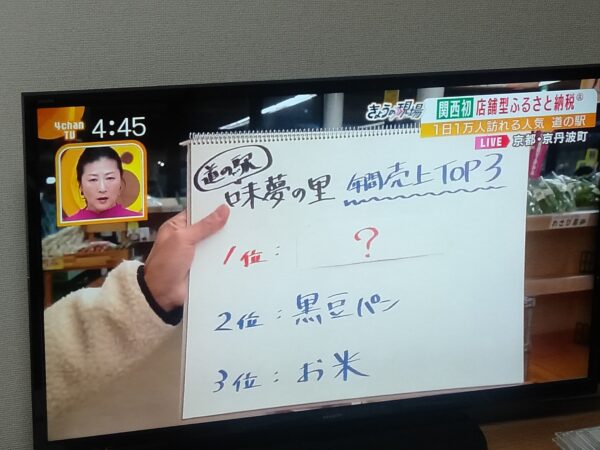 4chan
TV
4:45
きょうの現場
関西初 店舗型ふるさと納税④
1日1万人訪れる人気 道の駅
LIVE 京都・京丹波町
道の駅
味夢の里 年間売上TOP3
1位: ?
2位:黒豆パン
3位:お米